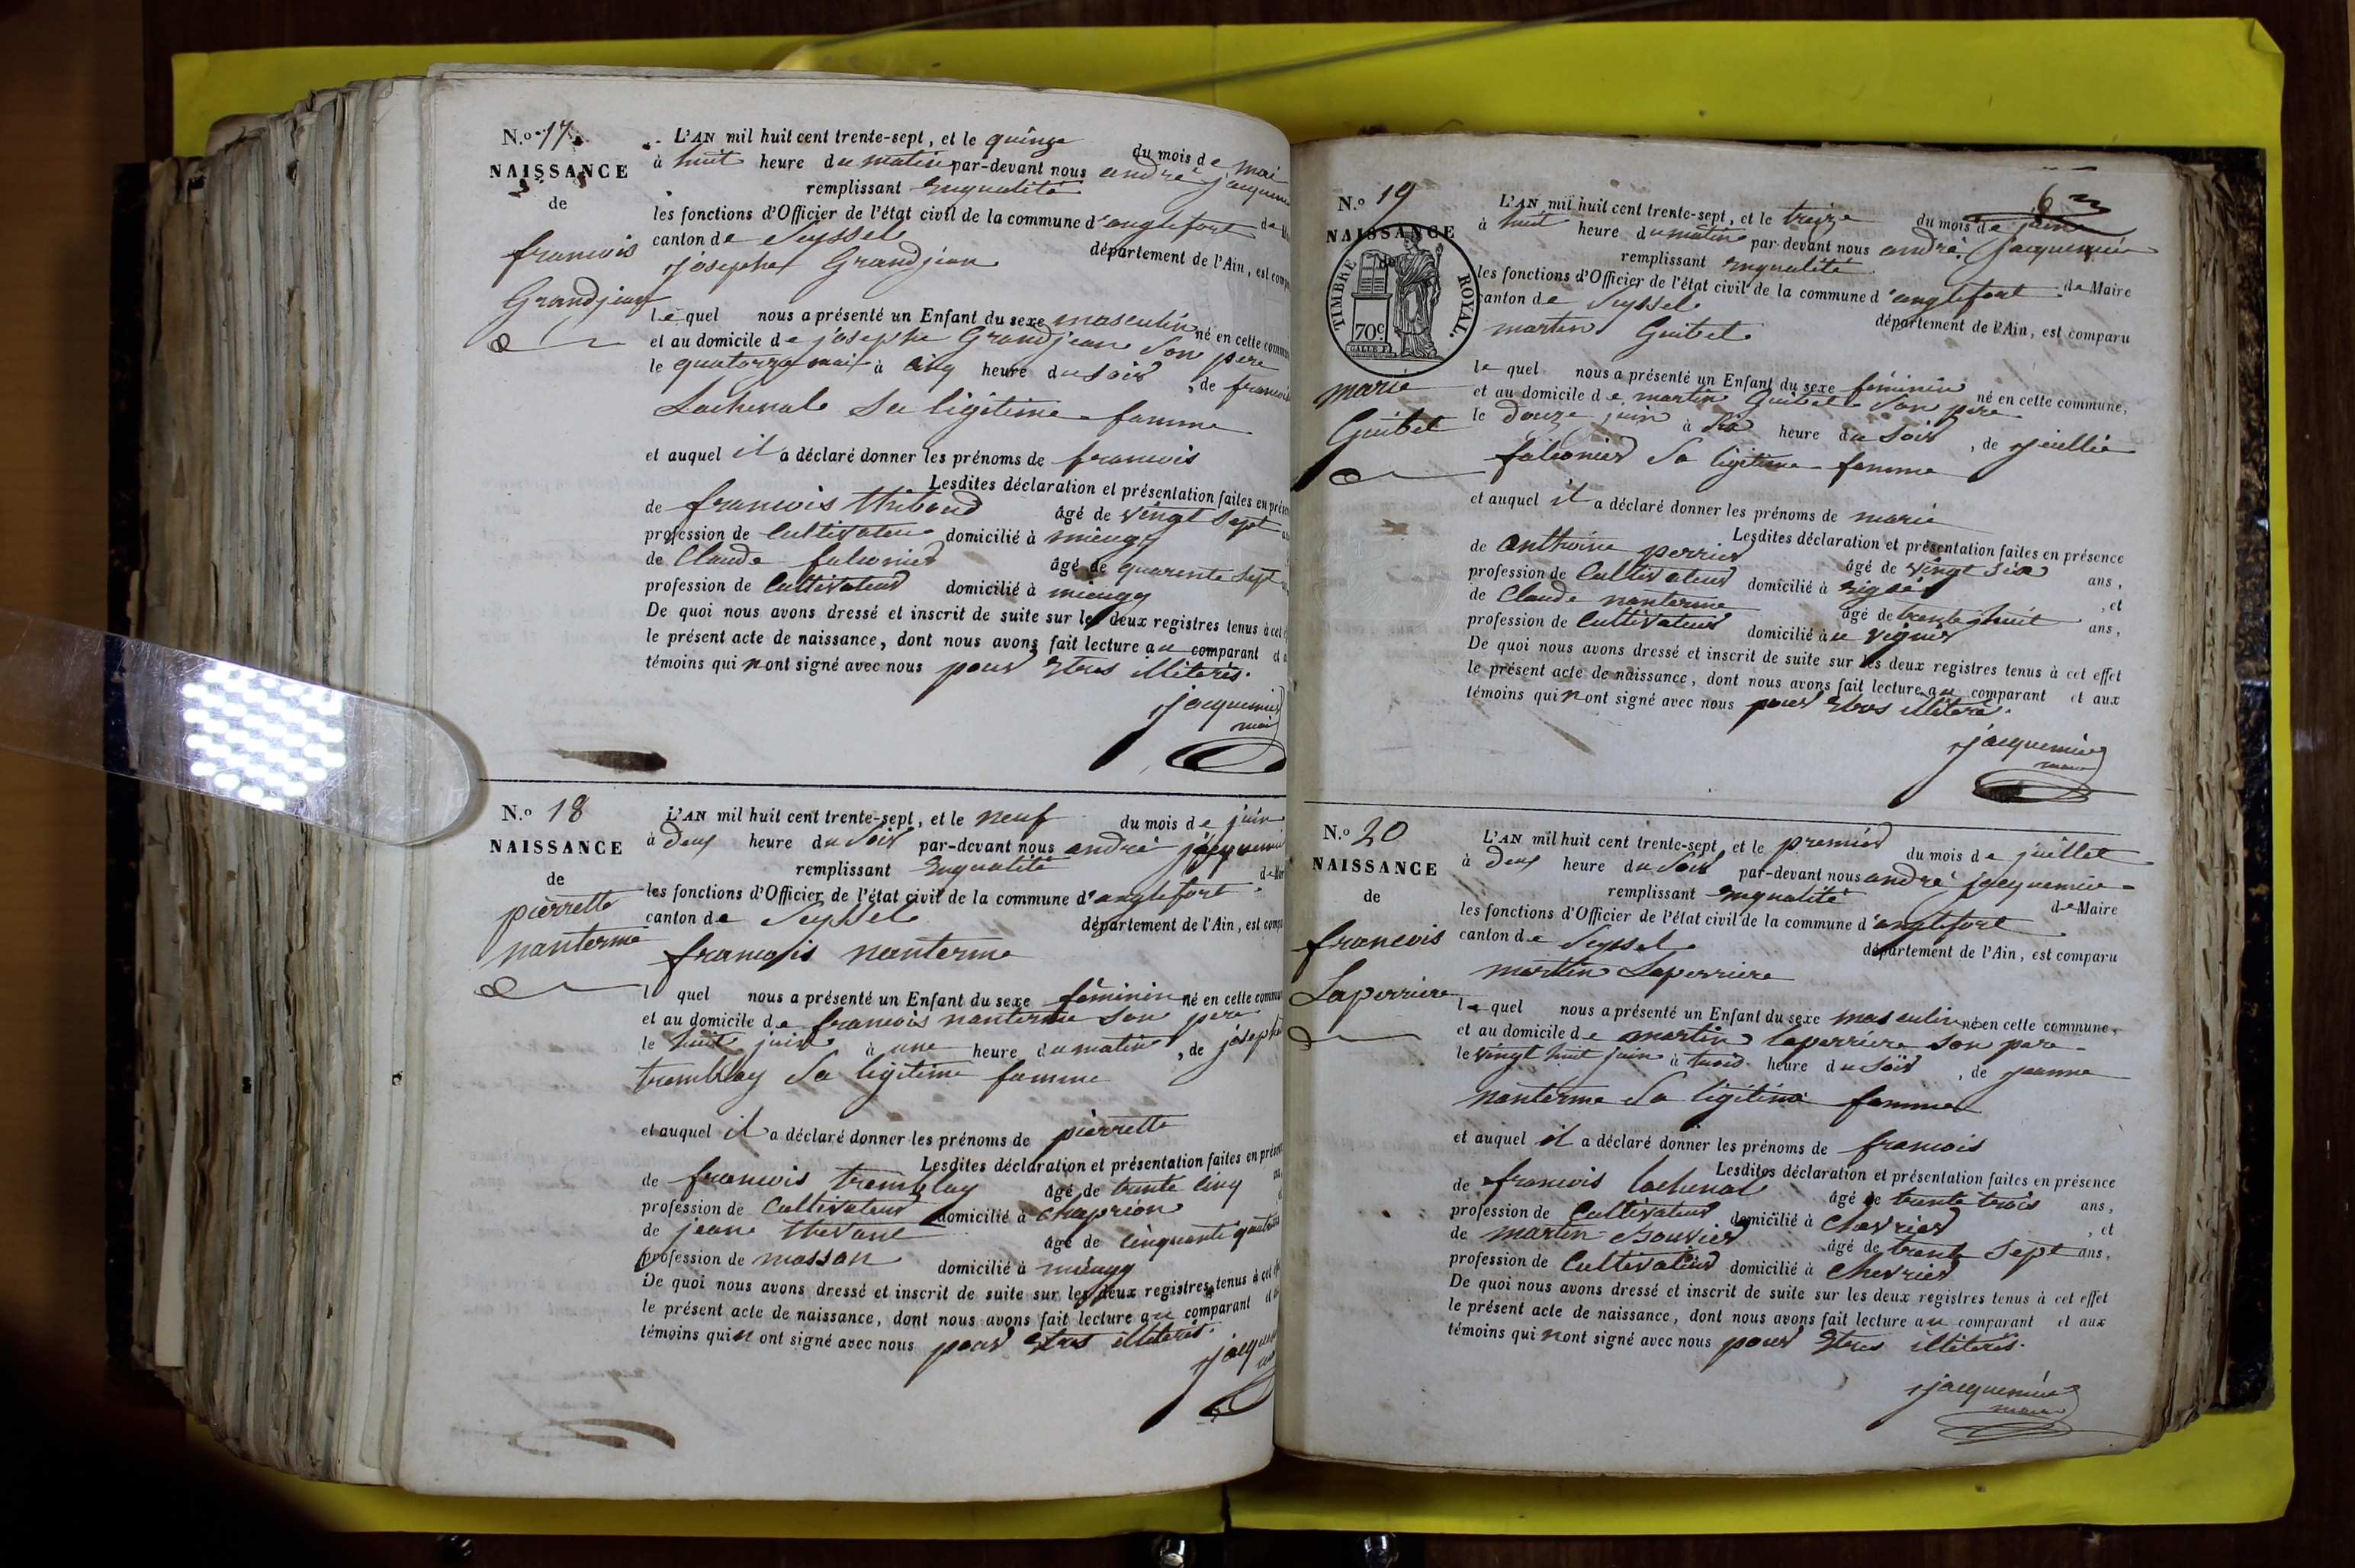 N.o 17
NAISSANCE
de
francois
Grandjean
L'AN mil huit cent trente-sept, et le quinze du mois de mai
à huit heure du matin par-devant nous andré jacquem
remplissant enqualité de
les fonctions d'Officier de l'état civil de la commune d'anglefort
canton de Seyssel département de l'Ain, est comp
josephe Grandjean
le quel nous a présenté un Enfant du sexe masculin né en cette commu
et au domicile de josephe Grandjean Son pere
le quatorze mai à cinq heure du soir, de francoi
Lachenale Sa ligitime femme
et auquel il a déclaré donner les prénoms de francois
Lesdites déclaration et présentation faites en prése
de francois thibaud âgé de vingt Sept
profession de Cultivateur domicilié à mieugy
de Claude falconier âgé de quarente Sept
profession de Cultivateur domicilié à mieugy
De quoi nous avons dressé et inscrit de suite sur les deux registres tenus à cet
le présent acte de naissance, dont nous avons fait lecture au comparant et
témoins qui nont signé avec nous pour Etres illiterés.
jacquemier
maire
N.o 18
NAISSANCE
de
pierrette
nanterme
L'AN mil huit cent trente-sept, et le neuf du mois de juin
à Deux heure du Soir par-devant nous andré jacquemi
remplissant enqualité de Mai
les fonctions d'Officier de l'état civil de la commune d'anglefort
canton de Seyssel département de l'Ain, est comp
francois nanterme
l quel nous a présenté un Enfant du sexe féminin né en cette commu
et au domicile de francois nanterme Son pere
le huit juin à une heure du matin, de joseph
tremblay Sa ligitime femme
et auquel il a déclaré donner les prénoms de pierrette
Lesdites déclaration et présentation faites en prése
de francois tremblay âgé de trente cinq
profession de Cultivateur domicilié à
de jean âgé de cinquante
profession de masson domicilié à mieugy
De quoi nous avons dressé et inscrit de suite sur les deux registres tenus à cet
le présent acte de naissance, dont nous avons fait lecture au comparant
témoins qui n ont signé avec nous pour Etres illiterés.
jacque
6
N.o 19
NAISSANCE
TIMBRE ROYAL.
70c
marie
Guibet
L'AN mil huit cent trente-sept, et le treize du mois de juin
à huit heure du matin par-devant nous andré jacquemier
remplissant enqualité de Maire
les fonctions d'Officier de l'état civil de la commune d'anglefort
canton de Seyssel département de l'Ain, est comparu
martin Guibet
le quel nous a présenté un Enfant du sexe féminin né en cette commune,
et au domicile de martin Guibet Son pere
le douze juin à heure du Soir, de
falconier Sa ligitime femme
et auquel il a déclaré donner les prénoms de marie
Lesdites déclaration et présentation faites en présence
de anthoine perrier âgé de vingt Six ans,
profession de Cultivateur domicilié à , et
de Claude nanterme âgé de trente huit ans,
profession de Cultivateur domicilié à
De quoi nous avons dressé et inscrit de suite sur les deux registres tenus à cet effet
le présent acte de naissance, dont nous avons fait lecture au comparant et aux
témoins qui nont signé avec nous pour Etres illiteré.
jacquemier
maire
N.o 20
NAISSANCE
de
francois
Laperriere
L'AN mil huit cent trente-sept, et le premier du mois de juillet
à Deux heure du Soir par-devant nous andré jacquemier
remplissant enqualité de Maire
les fonctions d'Officier de l'état civil de la commune d'anglefort
canton de Seyssel département de l'Ain, est comparu
martin Laperriere
le quel nous a présenté un Enfant du sexe masculin né en cette commune,
et au domicile de martin laperriere Son pere
le vingt huit juin à trois heure du Soir, de jeanne
nanterme Sa ligitime femme
et auquel il a déclaré donner les prénoms de francois
Lesdites déclaration et présentation faites en présence
de francois lachenal âgé de trente trois ans,
profession de Cultivateur domicilié à Chevrier , et
de martin Bouvier âgé de trente Sept ans,
profession de Cultivateur domicilié à Chevrier
De quoi nous avons dressé et inscrit de suite sur les deux registres tenus à cet effet
le présent acte de naissance, dont nous avons fait lecture au comparant et aux
témoins qui nont signé avec nous pour Etres illiterés.
jacquemier
maire